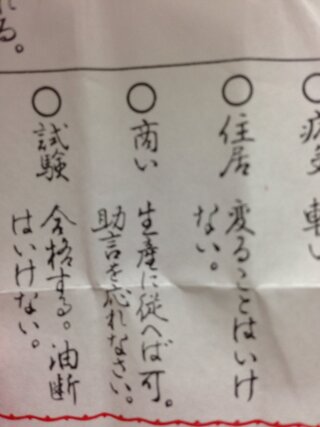 病気 軽い
○住居 変ることはいけ
ない。
○商い 生産に従へば可。
助言を忘れなさい。
○試験 合格する。油断
はいけない。
る。